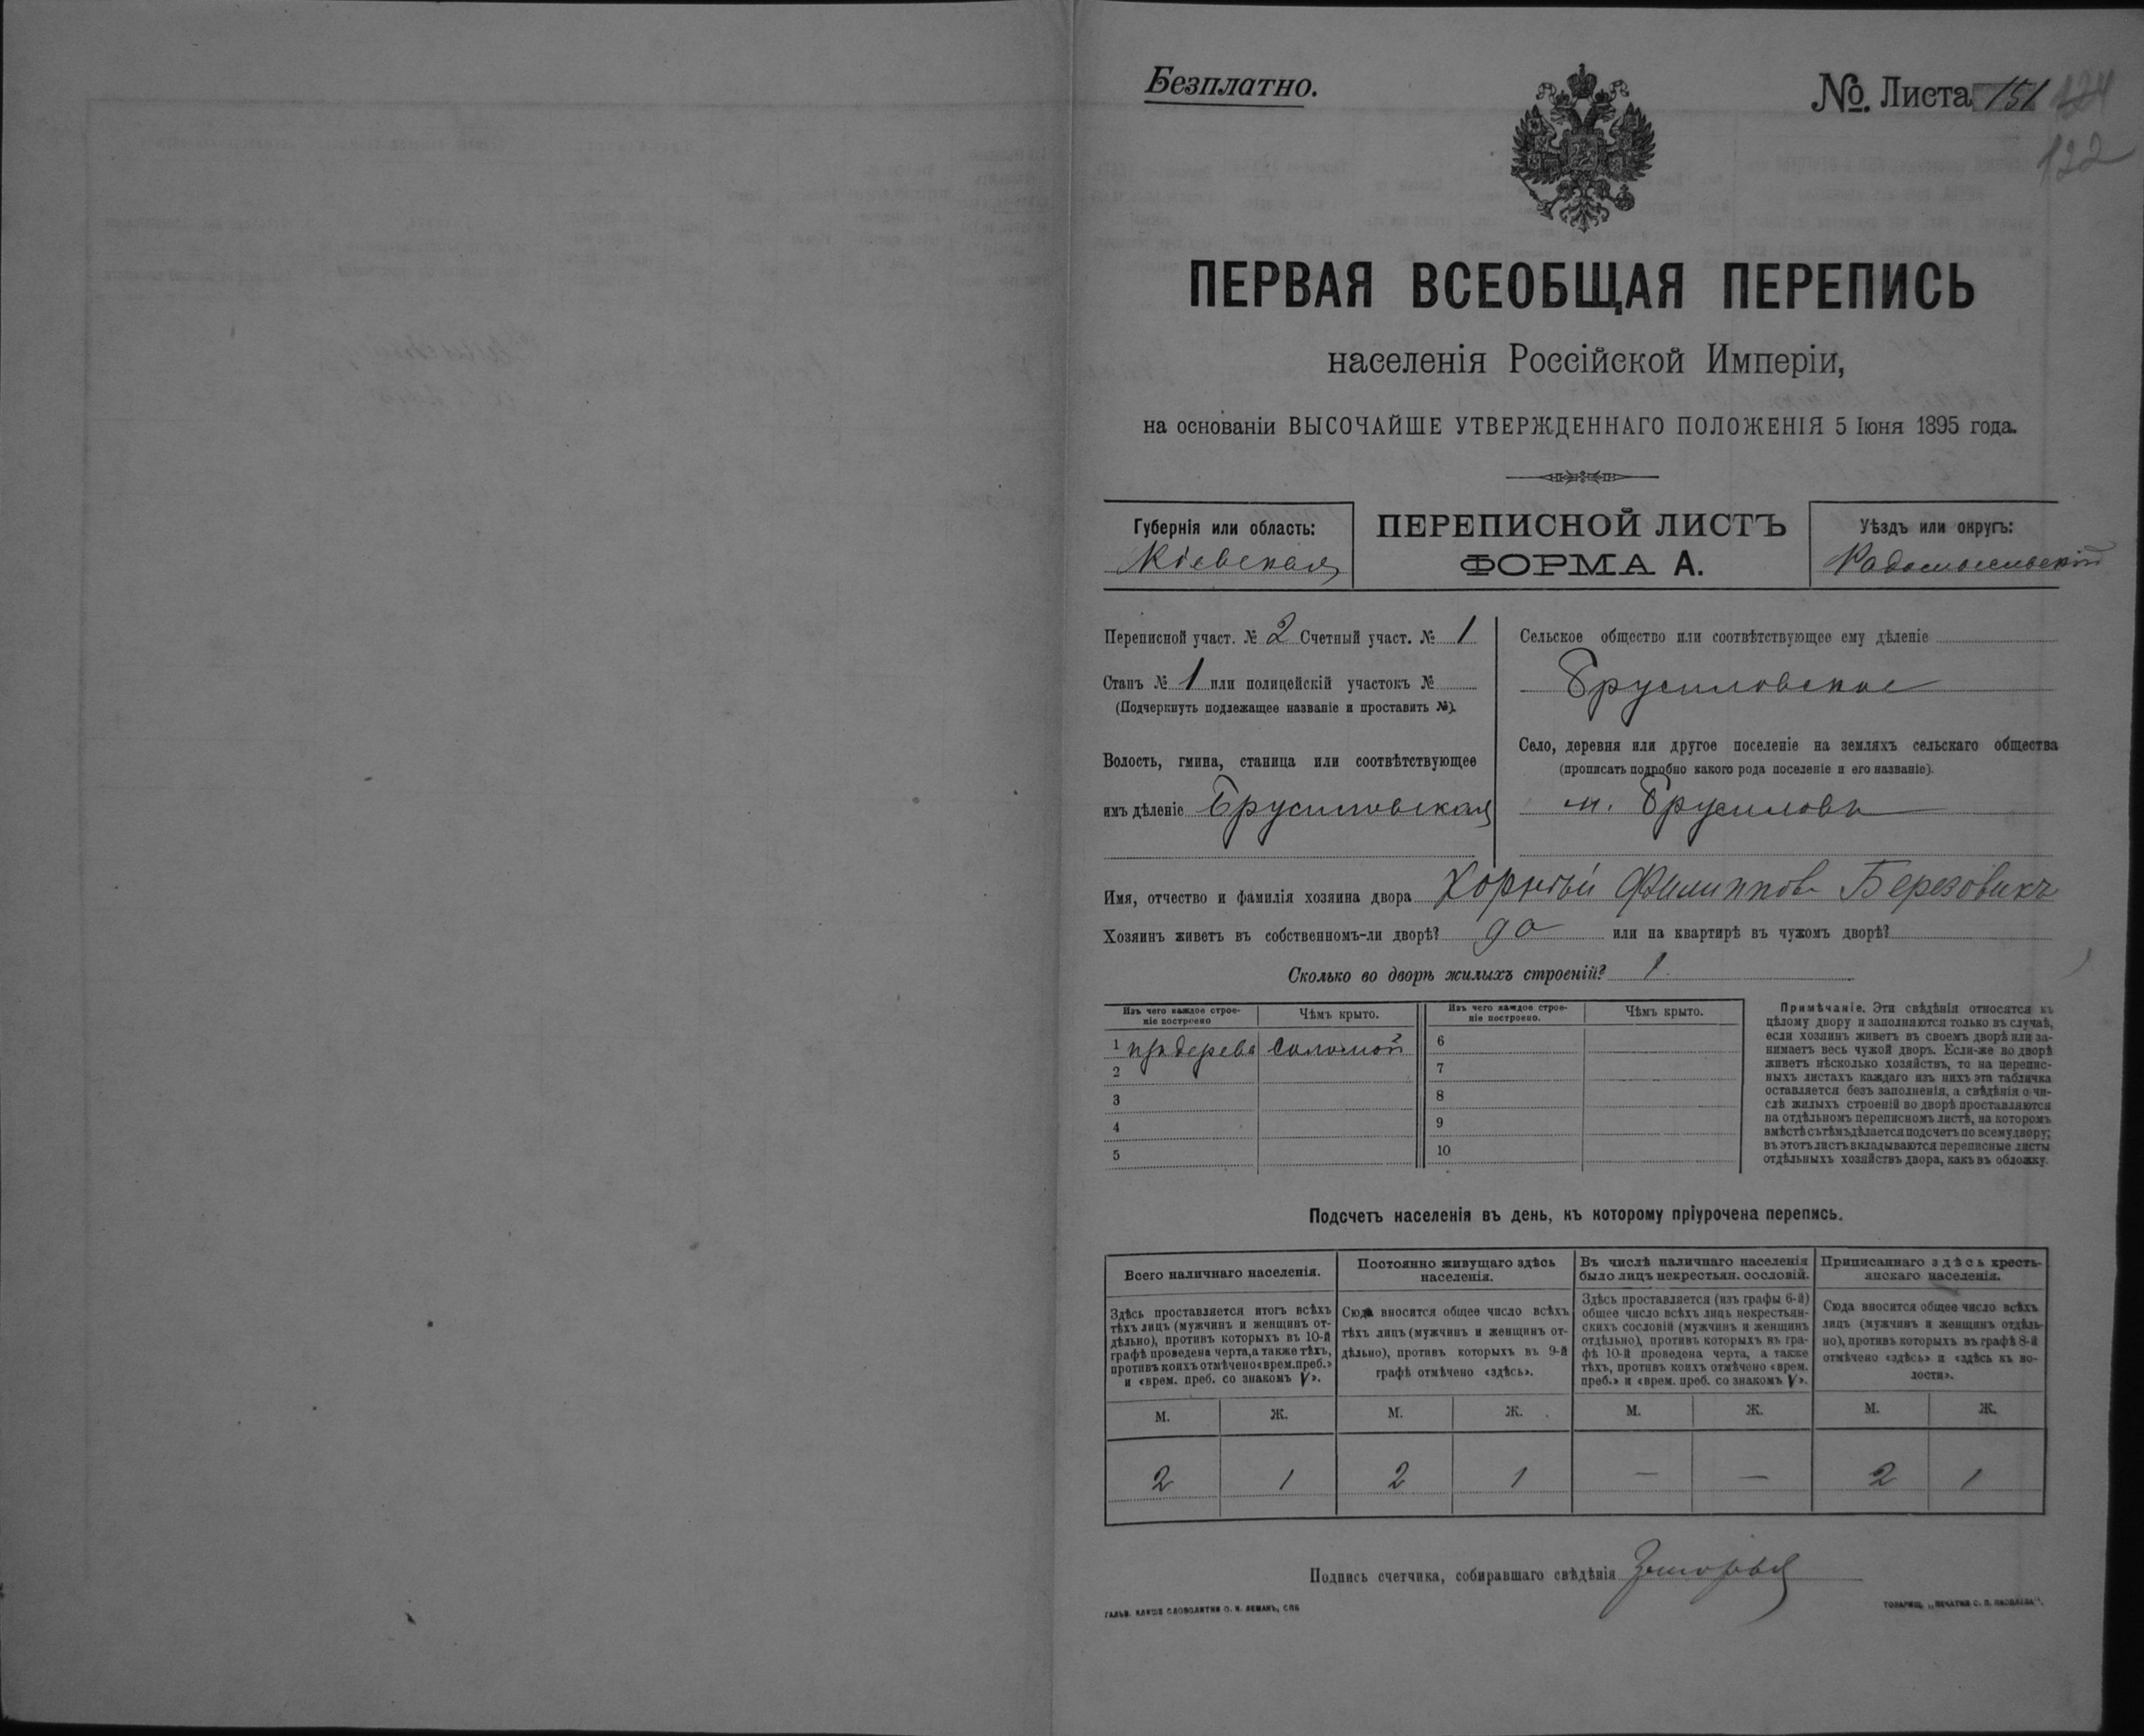 Безплатно.
№ Листа 151 124
122
ПЕРВАЯ ВСЕОБЩАЯ ПЕРЕПИСЬ
населенія Россійской Имперіи,
на основаніи ВЫСОЧАЙШЕ УТВЕРЖДЕННАГО ПОЛОЖЕНІЯ 5 Іюня 1895 года.
Губернія или область:
Кіевская
ПЕРЕПИСНОЙ ЛИСТЪ
ФОРМА А.
Уѣздъ или округъ:
Радомысльскій
Переписной участ. № 2 Счетный участ. № 1
Станъ № 1 или полицейскій участокъ №
(Подчеркнуть подлежащее названіе и проставить №).
Волость, гмина, станица или соотвѣтствующее
имъ дѣленіе Брусиловская
Сельское общество или соотвѣтствующее ему дѣленіе
Брусиловское
Село, деревня или другое поселеніе на земляхъ сельскаго общества
(прописать подробно какого рода поселеніе и его названіе).
м. Брусиловъ
Имя, отчество и фамилія хозяина двора Корнѣй Филиппов Березовикъ
Хозяинъ живетъ въ собственномъ-ли дворѣ? да или на квартирѣ въ чужомъ дворѣ?
Сколько во дворѣ жилыхъ строеній? 1
Изъ чего каждое строе-
ніе построено
Чѣмъ крыто.
1 изъ дерева соломой
2
3
4
5
Изъ чего каждое строе-
ніе построено.
Чѣмъ крыто.
6
7
8
9
10
Примѣчаніе. Эти свѣдѣнія относятся къ
цѣлому двору и заполняются только въ случаѣ,
если хозяинъ живетъ въ своемъ дворѣ или за-
нимаетъ весь чужой дворъ. Если-же во дворѣ
живетъ нѣсколько хозяйствъ, то на перепис-
ныхъ листахъ каждаго изъ нихъ эта табличка
оставляется безъ заполненія, а свѣдѣнія о чи-
слѣ жилыхъ строеній во дворѣ проставляются
на отдѣльномъ переписномъ листѣ, на которомъ
вмѣстѣ съ тѣмъ дѣлается подсчетъ по всему двору;
въ этотъ листъ вкладываются переписные листы
отдѣльныхъ хозяйствъ двора, какъ въ обложку.
Подсчетъ населенія въ день, къ которому пріурочена перепись.
Всего наличнаго населенія.
Здѣсь проставляется итогъ всѣхъ
тѣхъ лицъ (мужчинъ и женщинъ от-
дѣльно), противъ которыхъ въ 10-й
графѣ проведена черта, а также тѣхъ,
противъ коихъ отмѣчено «врем. преб.»
и «врем. преб. со знакомъ V».
М. Ж.
2 1
Постоянно живущаго здѣсь
населенія.
Сюда вносится общее число всѣхъ
тѣхъ лицъ (мужчинъ и женщинъ от-
дѣльно), противъ которыхъ въ 9-й
графѣ отмѣчено «здѣсь».
М. Ж.
2 1
Въ числѣ наличнаго населенія
было лицъ некрестьян. сословій.
Здѣсь проставляется (изъ графы 6-й)
общее число всѣхъ лицъ некрестьян-
скихъ сословій (мужчинъ и женщинъ
отдѣльно), противъ которыхъ въ гра-
фѣ 10-й проведена черта, а также
тѣхъ, противъ коихъ отмѣчено «врем.
преб.» и «врем. преб. со знакомъ V».
М. Ж.
— —
Приписаннаго здѣсь кресть-
янскаго населенія.
Сюда вносится общее число всѣхъ
лицъ (мужчинъ и женщинъ отдѣль-
но), противъ которыхъ въ графѣ 8-й
отмѣчено «здѣсь» и «здѣсь къ во-
лости».
М. Ж.
2 1
Подпись счетчика, собиравшаго свѣдѣнія
ГАЛЬВ. КЛИШЕ СЛОВОЛИТНИ О. И. ЛЕМАНЪ, СПБ
ТОВАРИЩ. „ПЕЧАТНЯ С. П. ЯКОВЛЕВА".